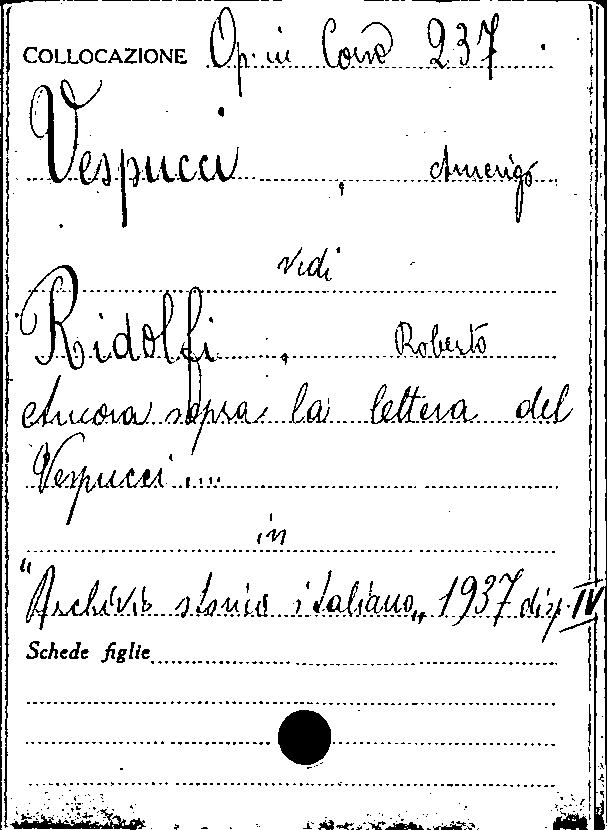 COLLOCAZIONE Op. in Corso 237
Vespucci, Amerigo
vedi
Ridolfi, Roberto
Ancora sopra la lettera del
Vespucci ....
in
"Archivio storico italiano„ 1937 disp. IV
Schede figlie